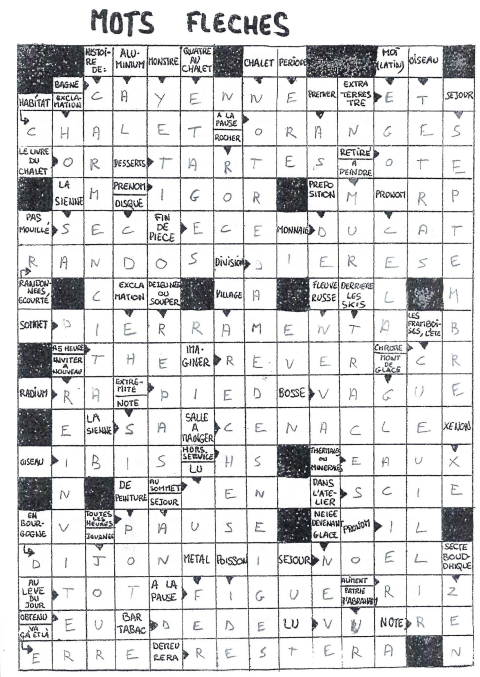 MOTS FLECHES
HISTOI-RE DE: ALU-MINIUM MONSTRE QUATRE AU CHALET CHALET PERIODE MOI (LATIN) OISEAU
HABITAT BAGNE EXCLA-MATION C A Y E N N E PREMIER EXTRA TERRES TRE E T SEJOUR
C H A L E T A LA PAUSE ROCHER O R A N G E S
LE LIVRE DU CHALET O R DESSERTS T A R T E S RETIRE A PEINDRE O T E
LA SIENNE M PRENOM DISQUE I G O R PREPO SITION M PRONOM R P
PAS MOUILLÉ S E C FIN DE PIECE E C E MONNAIE D U C A T
R A N D O S DIVISION D I E R E S E
RANDON-NÉES, ECOURTÉ C EXCLA MATION DEJEUNER OU SOUPER VILLAGE A FLEUVE RUSSE DERRIERE LES SKIS L M
SOMMET D I E R R A M E N T A LES FRAMBOI-SES, L'ETE B
A 5 HEURE INVITER A NOUVEAU T H E IMA-GINER R E V E R CHROME MONT DE GLACE C R
RADIUM R A EXTRE-MITÉ NOTE P I E D BOSSE V A G U E
E LA SIENNE S A SALLE A MANGER C E N A C L E XENON
OISEAU I B I S HORS SERVICE LU H S THERMALES OU MINERALES E A U X
N DE PEINTURE AU SOMMET SEJOUR E N DANS L'ATE-LIER S C I E
EN BOUR-GOGNE V TOUTES LES HEURES JOURNEE P A U S E NEIGE DEVENANT GLACE PRONOM I L
D I J O N METAL POISSON I SEJOUR N O E L SECTE BOUD-DHIQUE
AU LEVE DU JOUR T O T A LA PAUSE F I G U E ALIMENT PATRIE D'ABRAHAM R I Z
OBTENU VA ÇA ET LÀ E U BAR TABAC D E D E LU V U NOTE R E
E R R E DEMEU RERA R E S T E R A N